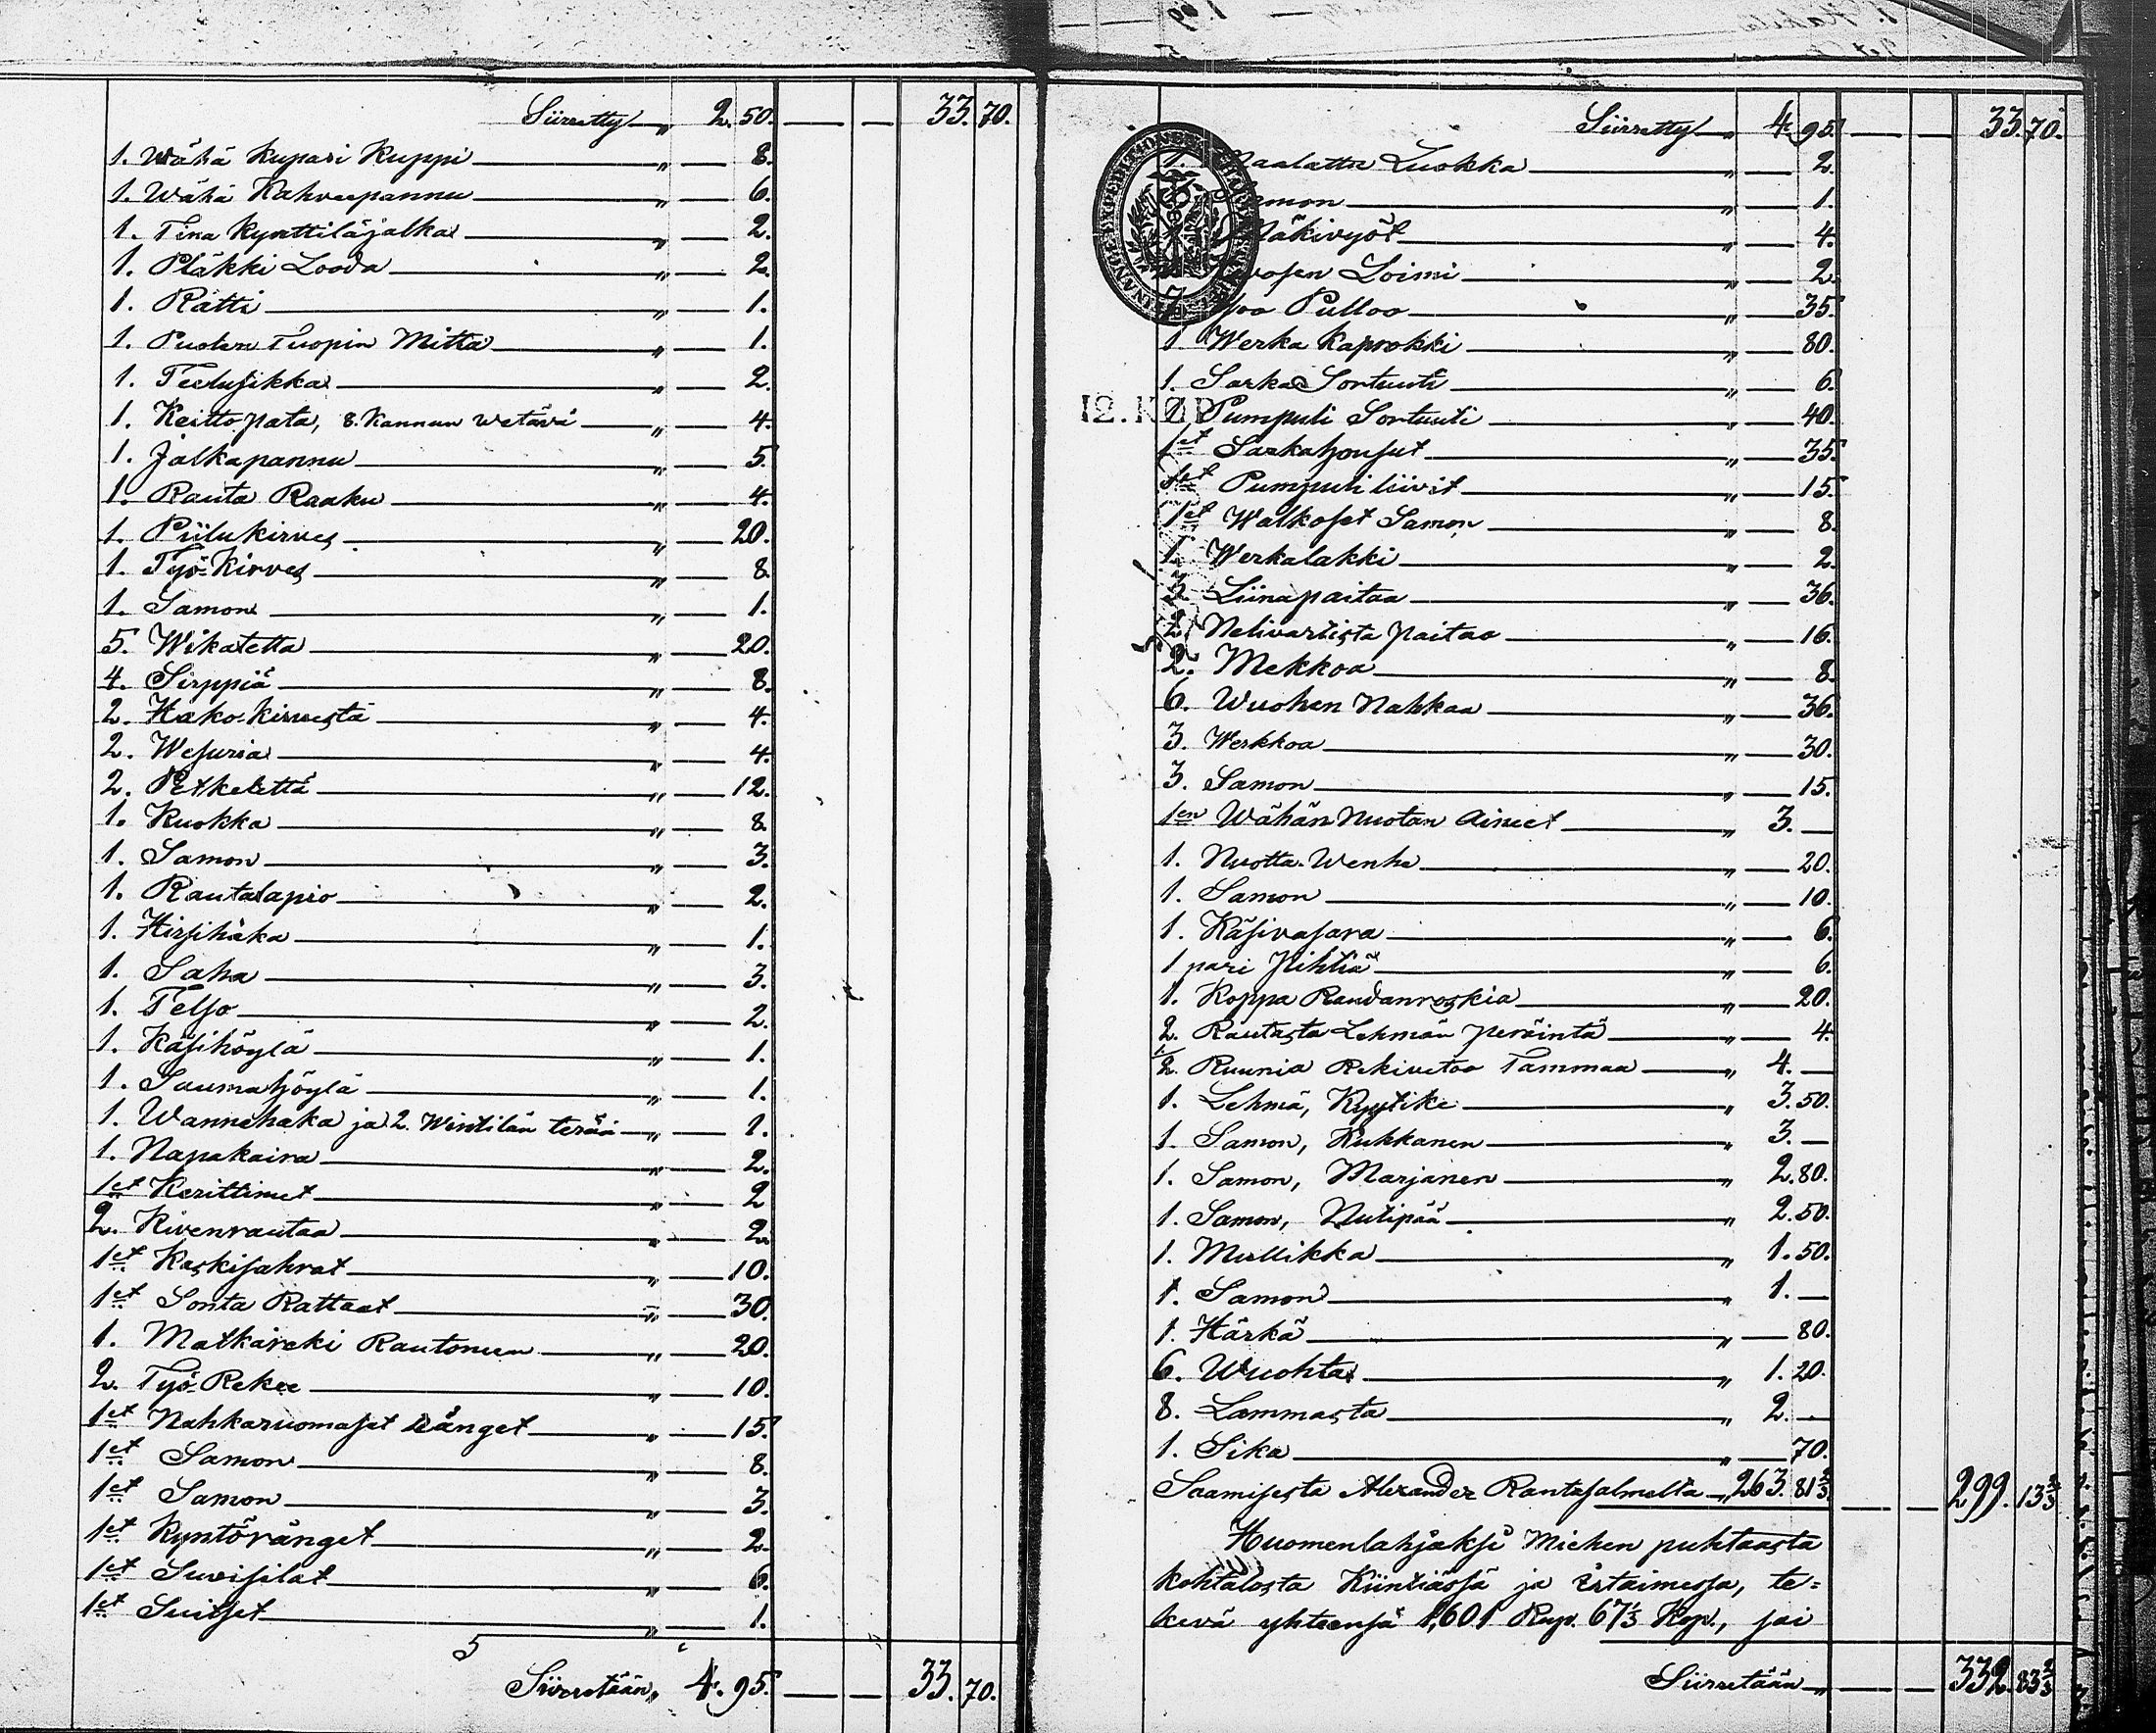 Siirretty „ 2. 50. — — 33. 70.
1. Wähä Kupari Kuppi „ — 8.
1. Wähä Kahveepannu „ — 6.
1. Tina Kynttiläjalka „ — 2.
1. Pläkki Looda „ — 2.
1. Rätti „ — 1.
1. Puolen Tuopin Mitta „ — 1.
1. Teelusikka „ — 2.
1. Keitto pata, 8. Kannun wetävä „ — 4.
1. Jalkapannu „ — 5.
1. Rauta Raaku „ — 4.
1. Piilukirves „ — 20.
1. Työ-Kirves „ — 8.
1. Samon „ — 1.
5. Wikatetta „ — 20.
4. Sirppiä „ — 8.
2. Hako-kirvestä „ — 4.
2. Wesuria „ — 4.
2. Petkelettä „ — 12.
1. Kuokka „ — 8.
1. Samon „ — 3.
1. Rautalapio „ — 2.
1. Hirsihaka „ — 1.
1. Saha „ — 3.
1. Telso „ — 2.
1. Käsihöylä „ — 1.
1. Saumahöylä „ — 1.
1. Wannehaka ja 2. Wintilän terää „ — 1.
1. Napakaira „ — 2.
1et Kerittimet „ — 2
2. Kivenrautaa „ — 2.
1et Koskisahrat „ — 10.
1et Sonta Rattaat „ — 30.
1. Matkareki Rautoneen „ — 20.
2. Työ-Rekee „ — 10.
1et Nahkaruomaset Länget „ — 15.
1et Samon „ — 8.
1et Samon „ — 3.
1et Kyntöränget „ — 2.
1et Suvisilat „ — 6.
1et Suitset „ — 1.
Siirretään „ 4. 95. — — 33. 70.
Siirretty „ 4. 95. — — 33. 70.
1. Maalattu Luokka „ — 2.
Samon „ — 1.
Mäkivyöt „ — 4.
Hevosen Loimi „ — 2.
Pulloo „ — 35.
1 Werka Kaprokki „ — 80.
1. Sarka Sortuuti „ — 6.
12. KOP
1 Pumpuli Sortuuti „ — 40.
1et Sarkahousut „ — 35.
1et Pumpuli liivit „ — 15.
1et Walkoset Samon „ — 8.
1. Werkalakki „ — 2.
3. Liinapaitaa „ — 36.
2. Nelivartista paitaa „ — 16.
2. Mekkoa „ — 8.
6. Wuohen Nahkaa „ — 36.
3. Werkkoa „ — 30.
3. Samon „ — 15.
1en Wähän Nuotan Aineet „ 3. —
1. Nuotta-Wenhe „ — 20.
1. Samon „ — 10.
1. Käsivasara „ — 6.
1 pari Pihtiä „ — 6.
1. Koppa Raudanroskia „ — 20.
2. Rautasta Lehmän peräintä „ — 4.
1/2. Ruunia Rekivetoo Tammaa „ 4. —
1. Lehmä, Kyytike „ 3. 50.
1. Samon, Kukkanen „ 3. —
1. Samon, Marjanen „ 2. 80.
1. Samon, Nutipää „ 2. 50.
1. Mullikka „ 1. 50.
1. Samon „ 1. —
1. Härkä „ — 80.
6. Wuohta „ 1. 20.
8. Lammasta „ 2. —
1. Sika „ — 70.
Saamisesta Alexander Rantasalmelta „ 263. 81 2/3 — — 299. 13 2/3
Huomenlahjaksi Miehen puhtaasta
kohtalosta Kiintiässä ja irtaimessa, te=
kevä yhteensä 1,601 Rup. 67 1/3 Kop., sai
Siirretään „ — — 332. 83 2/3